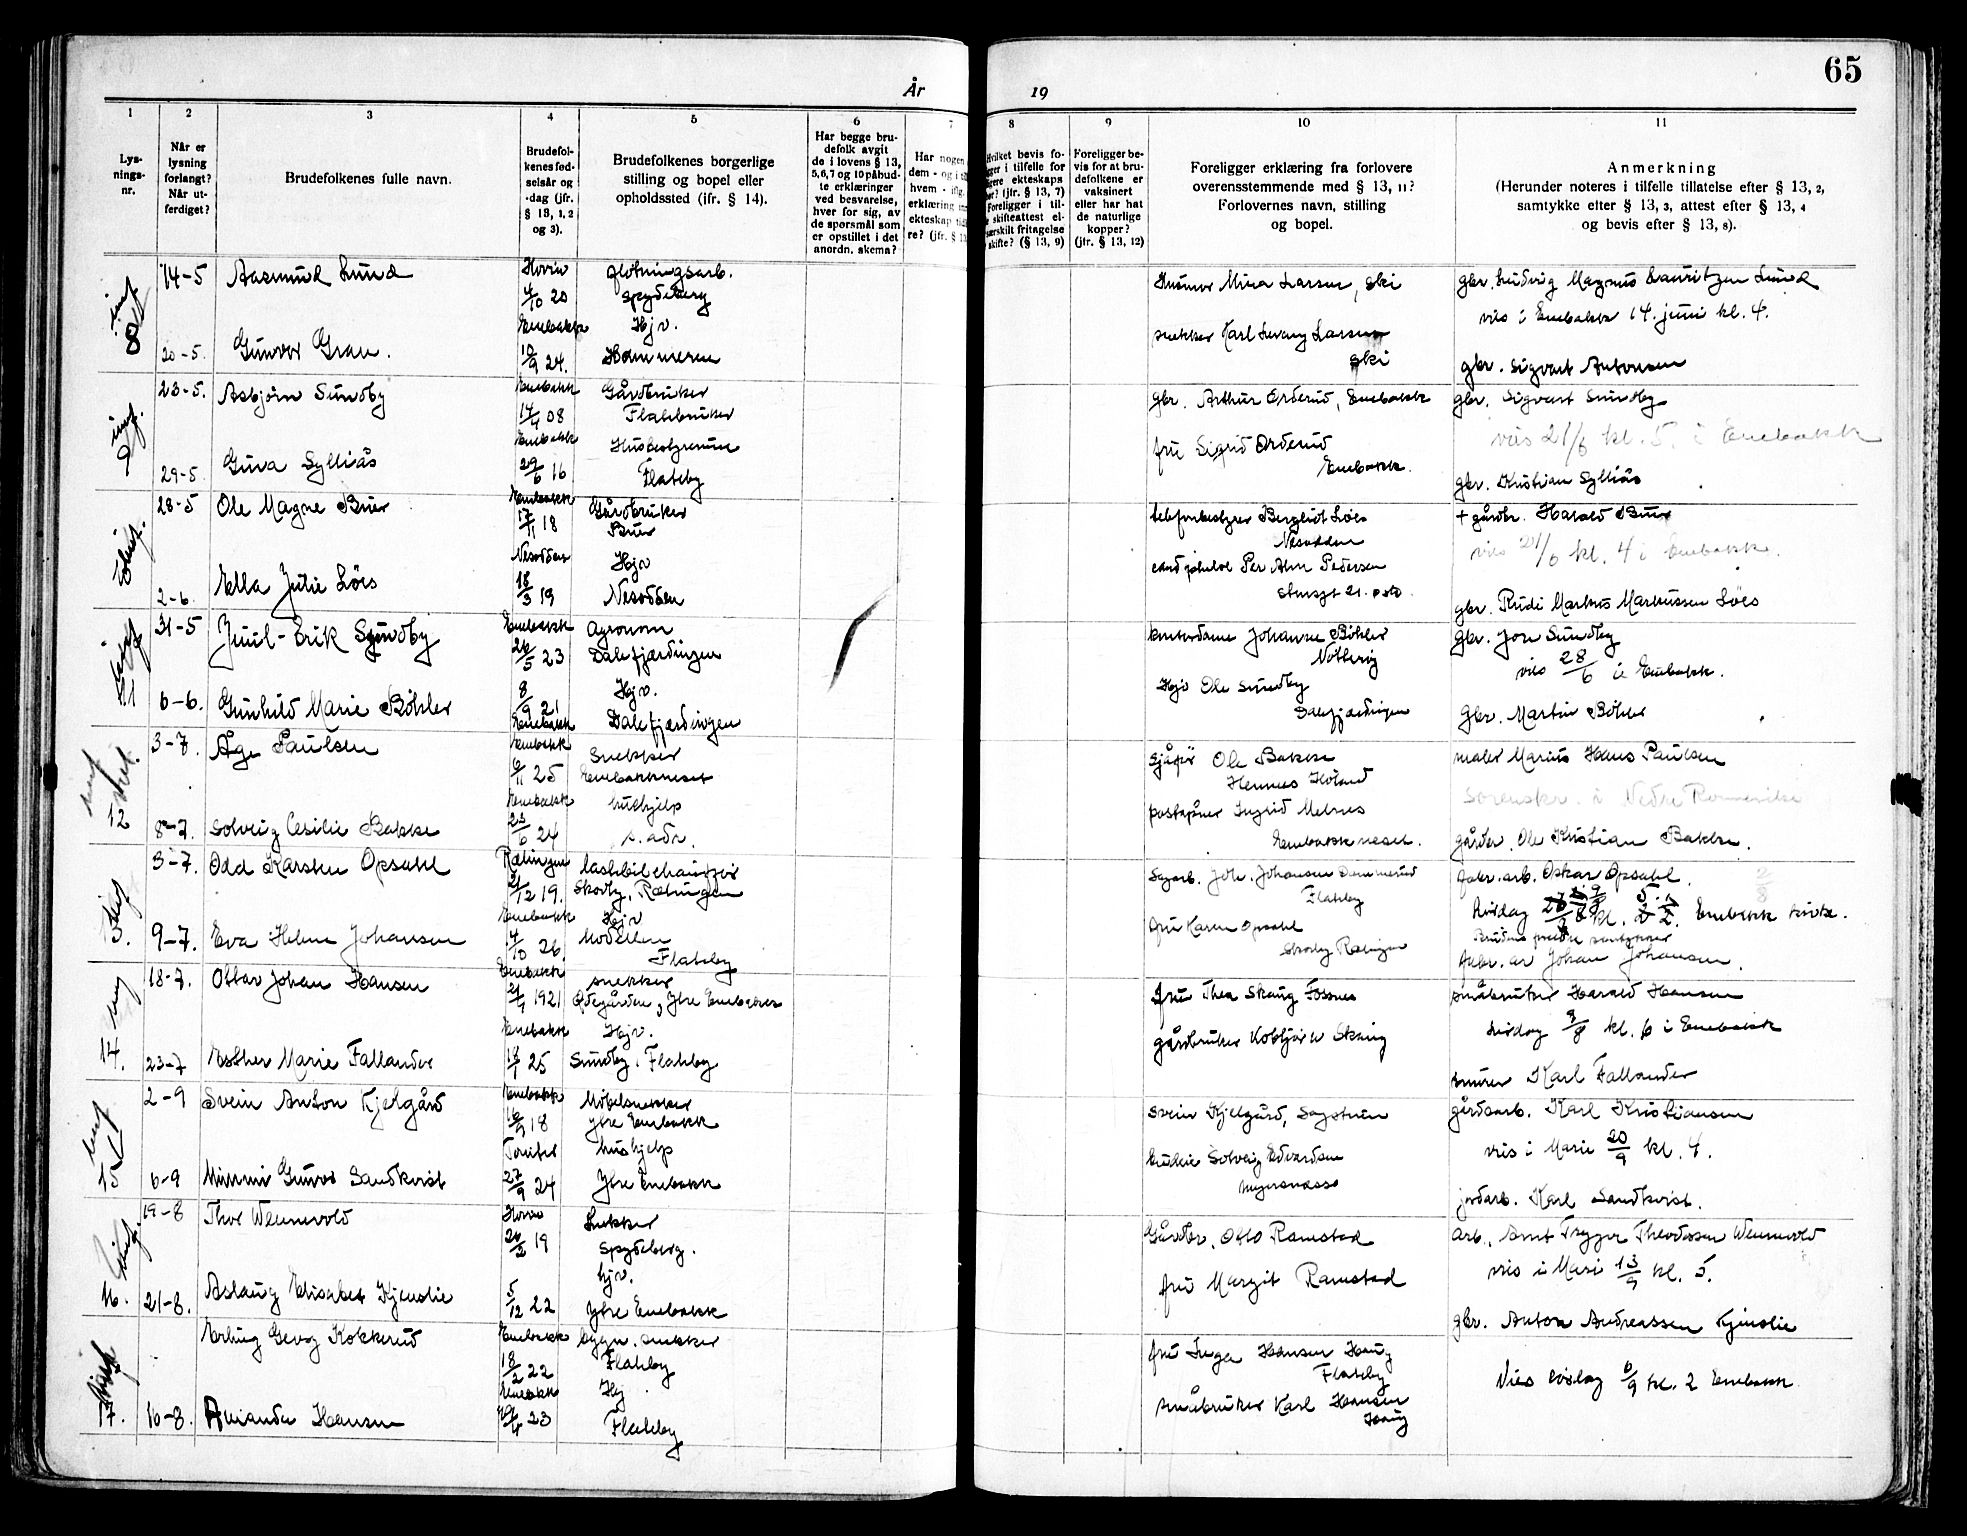 65
År
19
1
2
3
4
5
6
7
8
9
10
11
Lys-
nings-
nr.
Når er
lysning
forlangt?
Når ut-
ferdiget?
Brudefolkenes fulle navn.
Brudefol-
kenes fød-
selsår og
-dag (jfr.
§ 13, 1, 2
og 3).
Brudefolkenes borgerlige
stilling og bopel eller
opholdssted (ifr. § 14).
Har begge bru-
defolk avgit
de i lovens § 13,
5, 6, 7 og 10 påbud-
te erklæringer
ved besvarelse,
hver for sig, av
de spørsmål som
er opstillet i det
anordn. skema?
Har nogen
dem - og i
hvem - ifig.
erklæring
ekteskap
re? (jfr. § 13
Hvilket bevis fo-
i tilfelle for
ekteskaps
? (jfr. § 13, 7)
Foreligger i til-
skifteattest el-
særskilt fritagelse
skifte? (§ 13, 9)
Foreligger be-
vis for at bru-
defolkene er
vaksinert
eller har hat
de naturlige
kopper?
(jfr. § 13, 12)
Foreligger erklæring fra forlovere
overensstemmende med § 13, 11?
Forlovernes navn, stilling
og bopel.
Anmerkning
(Herunder noteres i tilfelle tillatelse efter § 13, 2,
samtykke efter § 13, 3, attest efter § 13, 4
og bevis efter § 13, 8).
8
14-5
Aasmund Lund
4/10 20
fløtningsarb.
Spydeberg
Enebakk
Hjv.
20-5.
Gunvor Gran.
10/9 24.
Hammeren
Mina Larsen, Ski
snekker Karl Larsen
Ski
gbr. Ludvig Magnus Lauritzen Lund
vies i Enebakk 14. juni kl. 4.
gbr. Sigvart Antonsen
9
23-5.
Asbjørn Sundby
Enebakk
14/4 08
Gårdbruker
Enebakk
29-5
Guva Sylliås
29/6 16
Flateby
gbr. Arthur Orderud, Enebakk
fru Sigrid Orderud
Enebakk.
gbr. Sigvart Sundby
vies 21/6 kl. 5 i Enebakk
gbr. Kristian Sylliås
28-5
Ole Magne Buer
Enebakk
17/11 18
Gårdbruker
Buer
Nesodden
Hjv
2-6.
Ella Julie Löes
18/3 19
Nesodden
Bergliot Löes
Nesodden
Per Alm Pedersen
+ gårdbr. Harald Buer
vies 21/6 kl. 4 i Enebakk.
gbr. Rudi Markus Markussen Löes
11
31-5
Juul-Erik Sundby
Enebakk
26/5 23
agronom
Dalefjerdingen
6-6.
Gunhild Marie Böhler
8/9 21
Enebakk
Hjv.
Dalefjerdingen
Johanne Böhler
Hjv Ole Sundby
Dalefjerdingen
Gbr. Jon Sundby
vies 28/6 i Enebakk.
Gbr. Martin Böhler
12
3-7.
Åge Paulsen
Enebakk
6/11 25
Snekker
Enebakkneset
Enebakk
hushjelp
8-7.
Solveig Cesilie Bakke
23/6 24
s. adr.
Sjåfør Ole Bakke
Hemnes Höland
poståpner Ingrid Melnes
Enebakkneset.
maler Marius Hans Paulsen
Sorenskr. i Nedre Romerike
gårdbr. Ole Kristian Bakke.
13.
3-7.
Odd Karsten Opsahl
Rælingen
21/12 19.
lastebilchauffør
Skodby, Rælingen
Enebakk
Hjv
9-7.
Eva Helene Johansen
14/10 26.
Modellen
Flateby
Sagarb. Joh. Johansen Dammerud
Flateby
fru Karen Opsahl
Skodby Rælingen
fabr. arb. Oskar Opsahl.
lördag
Enebakk kirke.
Johan Johansen.
14.
18-7.
Ottar Johan Hansen
Enebakk
1921
snekker
Ødegården, Ytre Enebakk
Enebakk
Hjv.
23-7
Esther Marie Fallander
25
Sundby. Flateby
fru Thea Skaug Fossnes
gårdbruker Kolbjørn Skaug
småbruker Harald Hansen
lördag 9/8 kl. 6 i Enebakk
murer Karl Fallander
15
2-9
Svein Anton Kjelgård
Enebakk
16/9 18
Möbelsnekker
Ytre Enebakk
hushjelp
6-9
Mimmi Gunvor Sandkvist
27/9 24
Ytre Enebakk
Svein Kjelgård,
Solveig Edvardsen
gårdsarb. Karl Kristiansen
vies i Marie 20/9 kl. 4.
jordarb. Karl Sandkvist.
16.
19-8
Thor Wennevold
26/2 19
Snekker
Spydeberg.
hjv.
21-8.
Aslaug Elisabet Kjenslie
5/12 22
Ytre Enebakk
Gårdbr. Otto Ramstad
fru Margit Ramstad
arb. Arnt Trygve Theodorsen Wennevold
vies i Mari 13/9 kl. 5.
gbr. Anton Andreassen Kjenslie
17.
Erling Georg Kokkerud
Enebakk
18/2 22
bygn. snekker
Flateby
Enebakk
Hj.
16-8.
Amanda Hansen
23
Flateby
fru Inga Hansen Haug
Flateby
småbruker Karl Hansen
Haug
Vies lördag 6/9 kl. 2 Enebakk